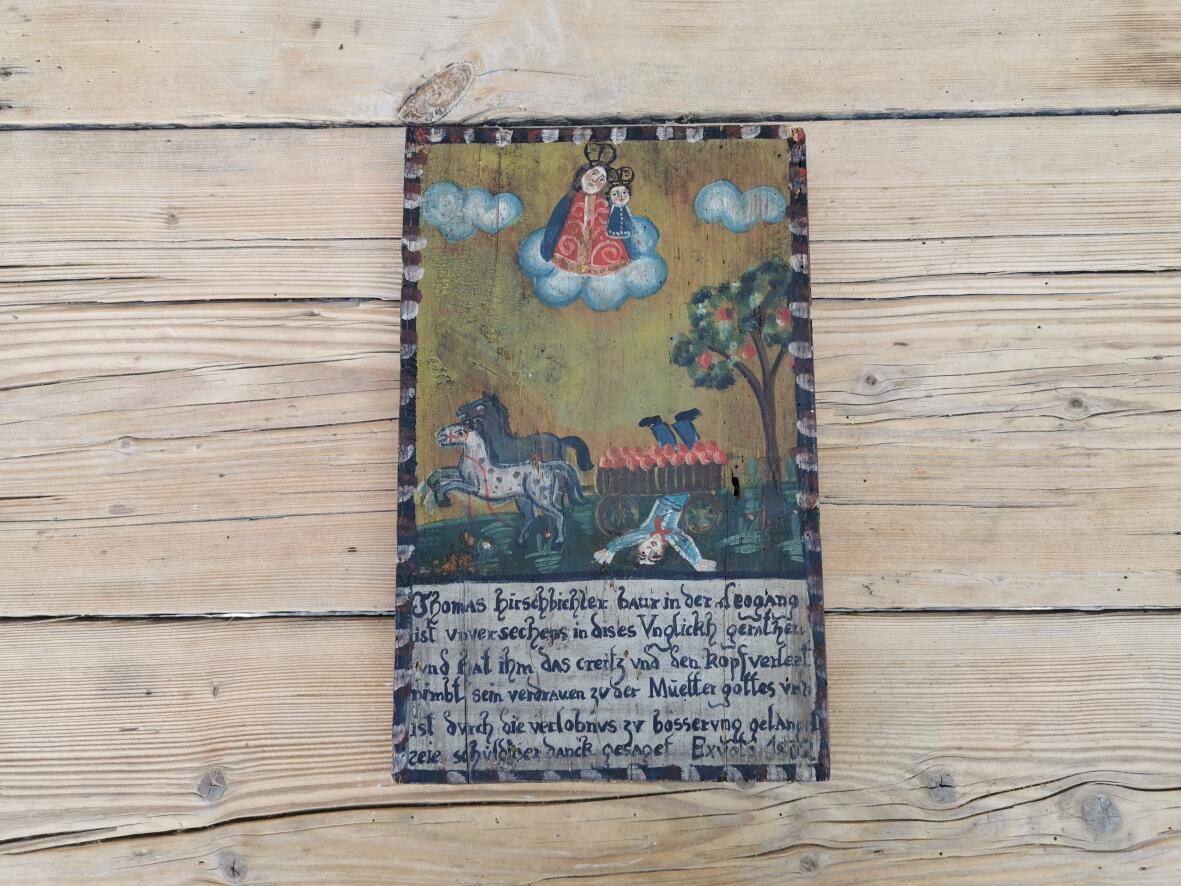 Thomas hirschbichler baur in der Leogang
ist vnversechens in dises Vnglickh gerathen
und hat ihm das creitz vnd den kopf verlezt
nimbt sein verdrauen zu der Muetter gottes vnd
ist durch die verlobnus zu bosserung gelangt
seie schuldiger danck gesaget Exvoto